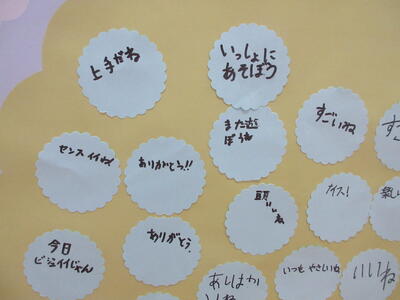 上手だね
いっしょに
あそぼう
すごいね
また遊
ぼうね
す
センスイイね
ありがとう!!
頭
いいね
ナイス!
今日
ビジュイイじゃん
ありがとう。
いつもやさしいね
いいね